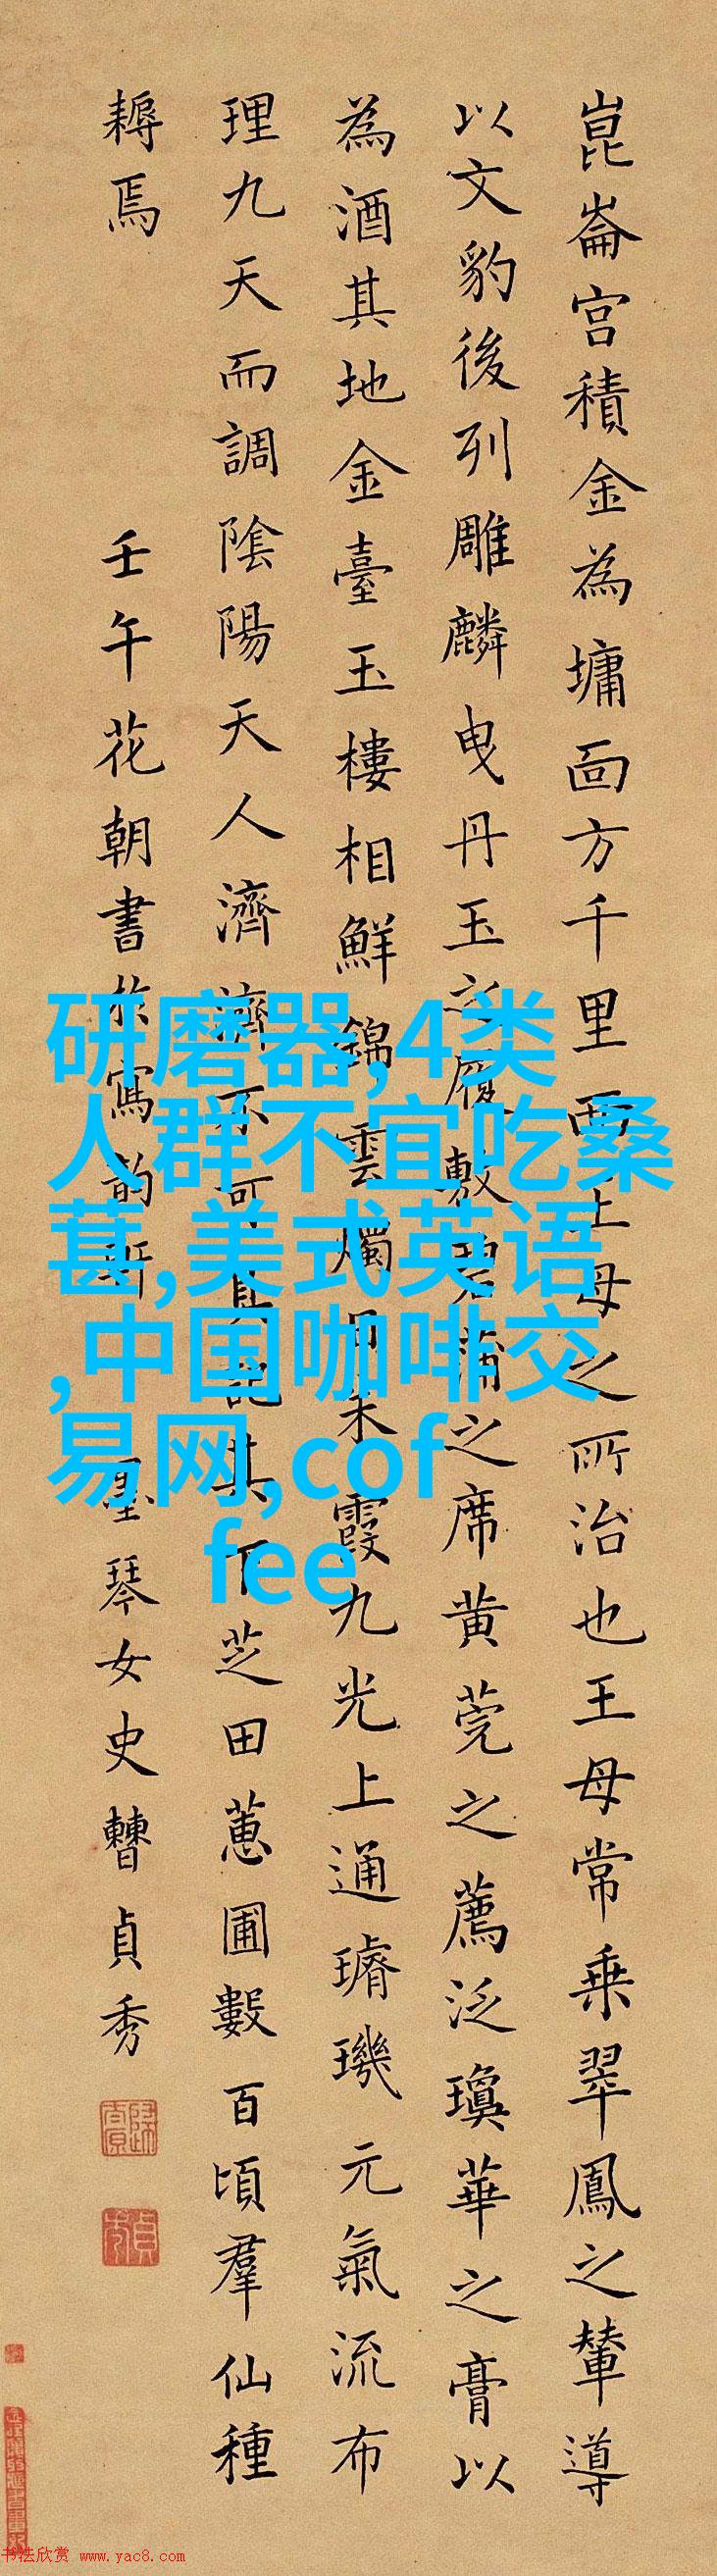 崑崙宮積金為墉面方千里西王母之所治也王母常乘翠鳳之輦導
以文豹後列雕麟曳丹玉之履敷碧蒲之席黃莞之薦泛瓊華之膏以
為酒其地金臺玉樓相鮮錦雲燭日朱霞九光上通璿璣元氣流布
理九天而調陰陽天人濟濟不可具記其下芝田蕙圃數百頃羣仙種
耨焉
壬午花朝書於寫韵軒 墨琴女史曹貞秀
研磨器,4类
人群不宜吃桑
葚,美式英语
,中国咖啡交
易网,cof
fee
书法欣赏 www.yac8.com